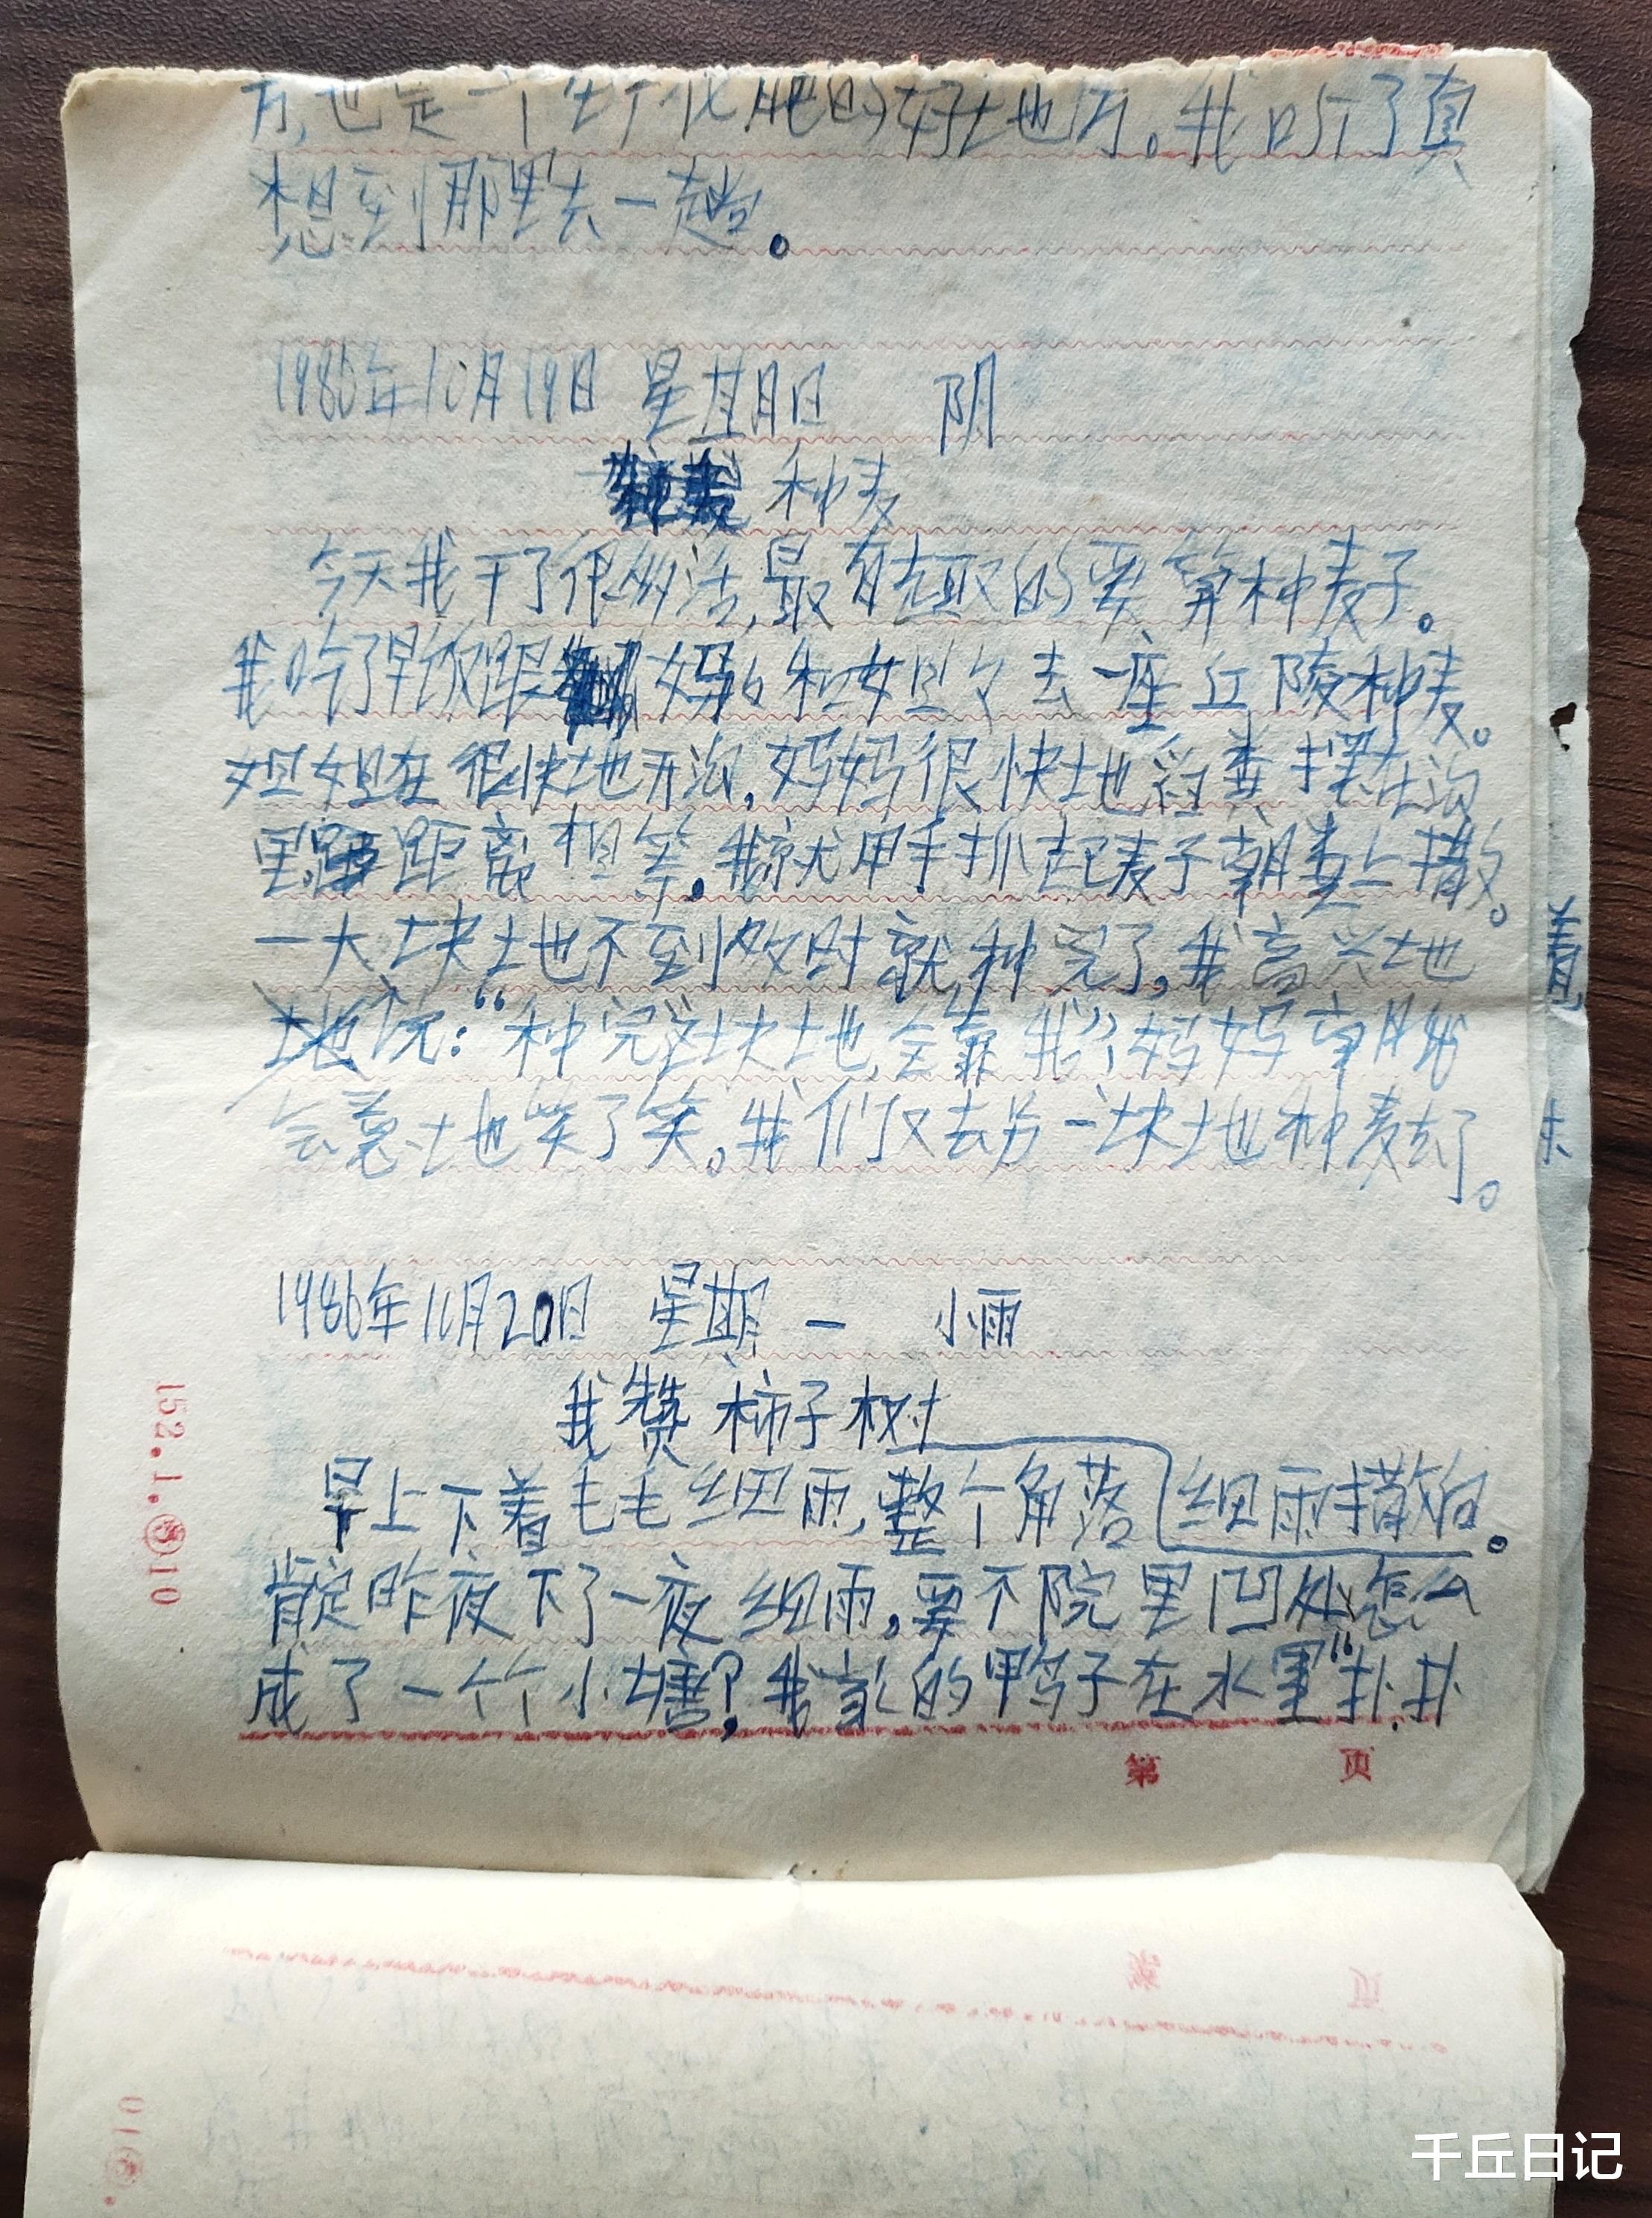 方,也是一个生产化肥的好地方。我听了真
想到那里去一趟。
1986年10月19日 星期日 阴
种麦
今天我干了很多活,最有趣的要算种麦子。
我吃了早饭跟妈妈和姐姐去一座丘陵种麦。
姐姐在很快地开沟,妈妈很快地将粪摆在沟
里,距离相等,我就用手抓起麦子朝粪上撒。
一大块土地不到数时就种完了,我高兴地
说:“种完这块地,全靠我”,妈妈
会意地笑了笑。我们又去另一块地种麦去了。
1986年10月20日 星期一 小雨
我赞柿子树
早上下着毛毛细雨,整个角落细雨撒饱。
肯定昨夜下了一夜细雨,要不院里凹处怎么
成了一个个小塘?我家的鸭子在水里“扑扑
152.1.⑤10
第 页
千丘日记